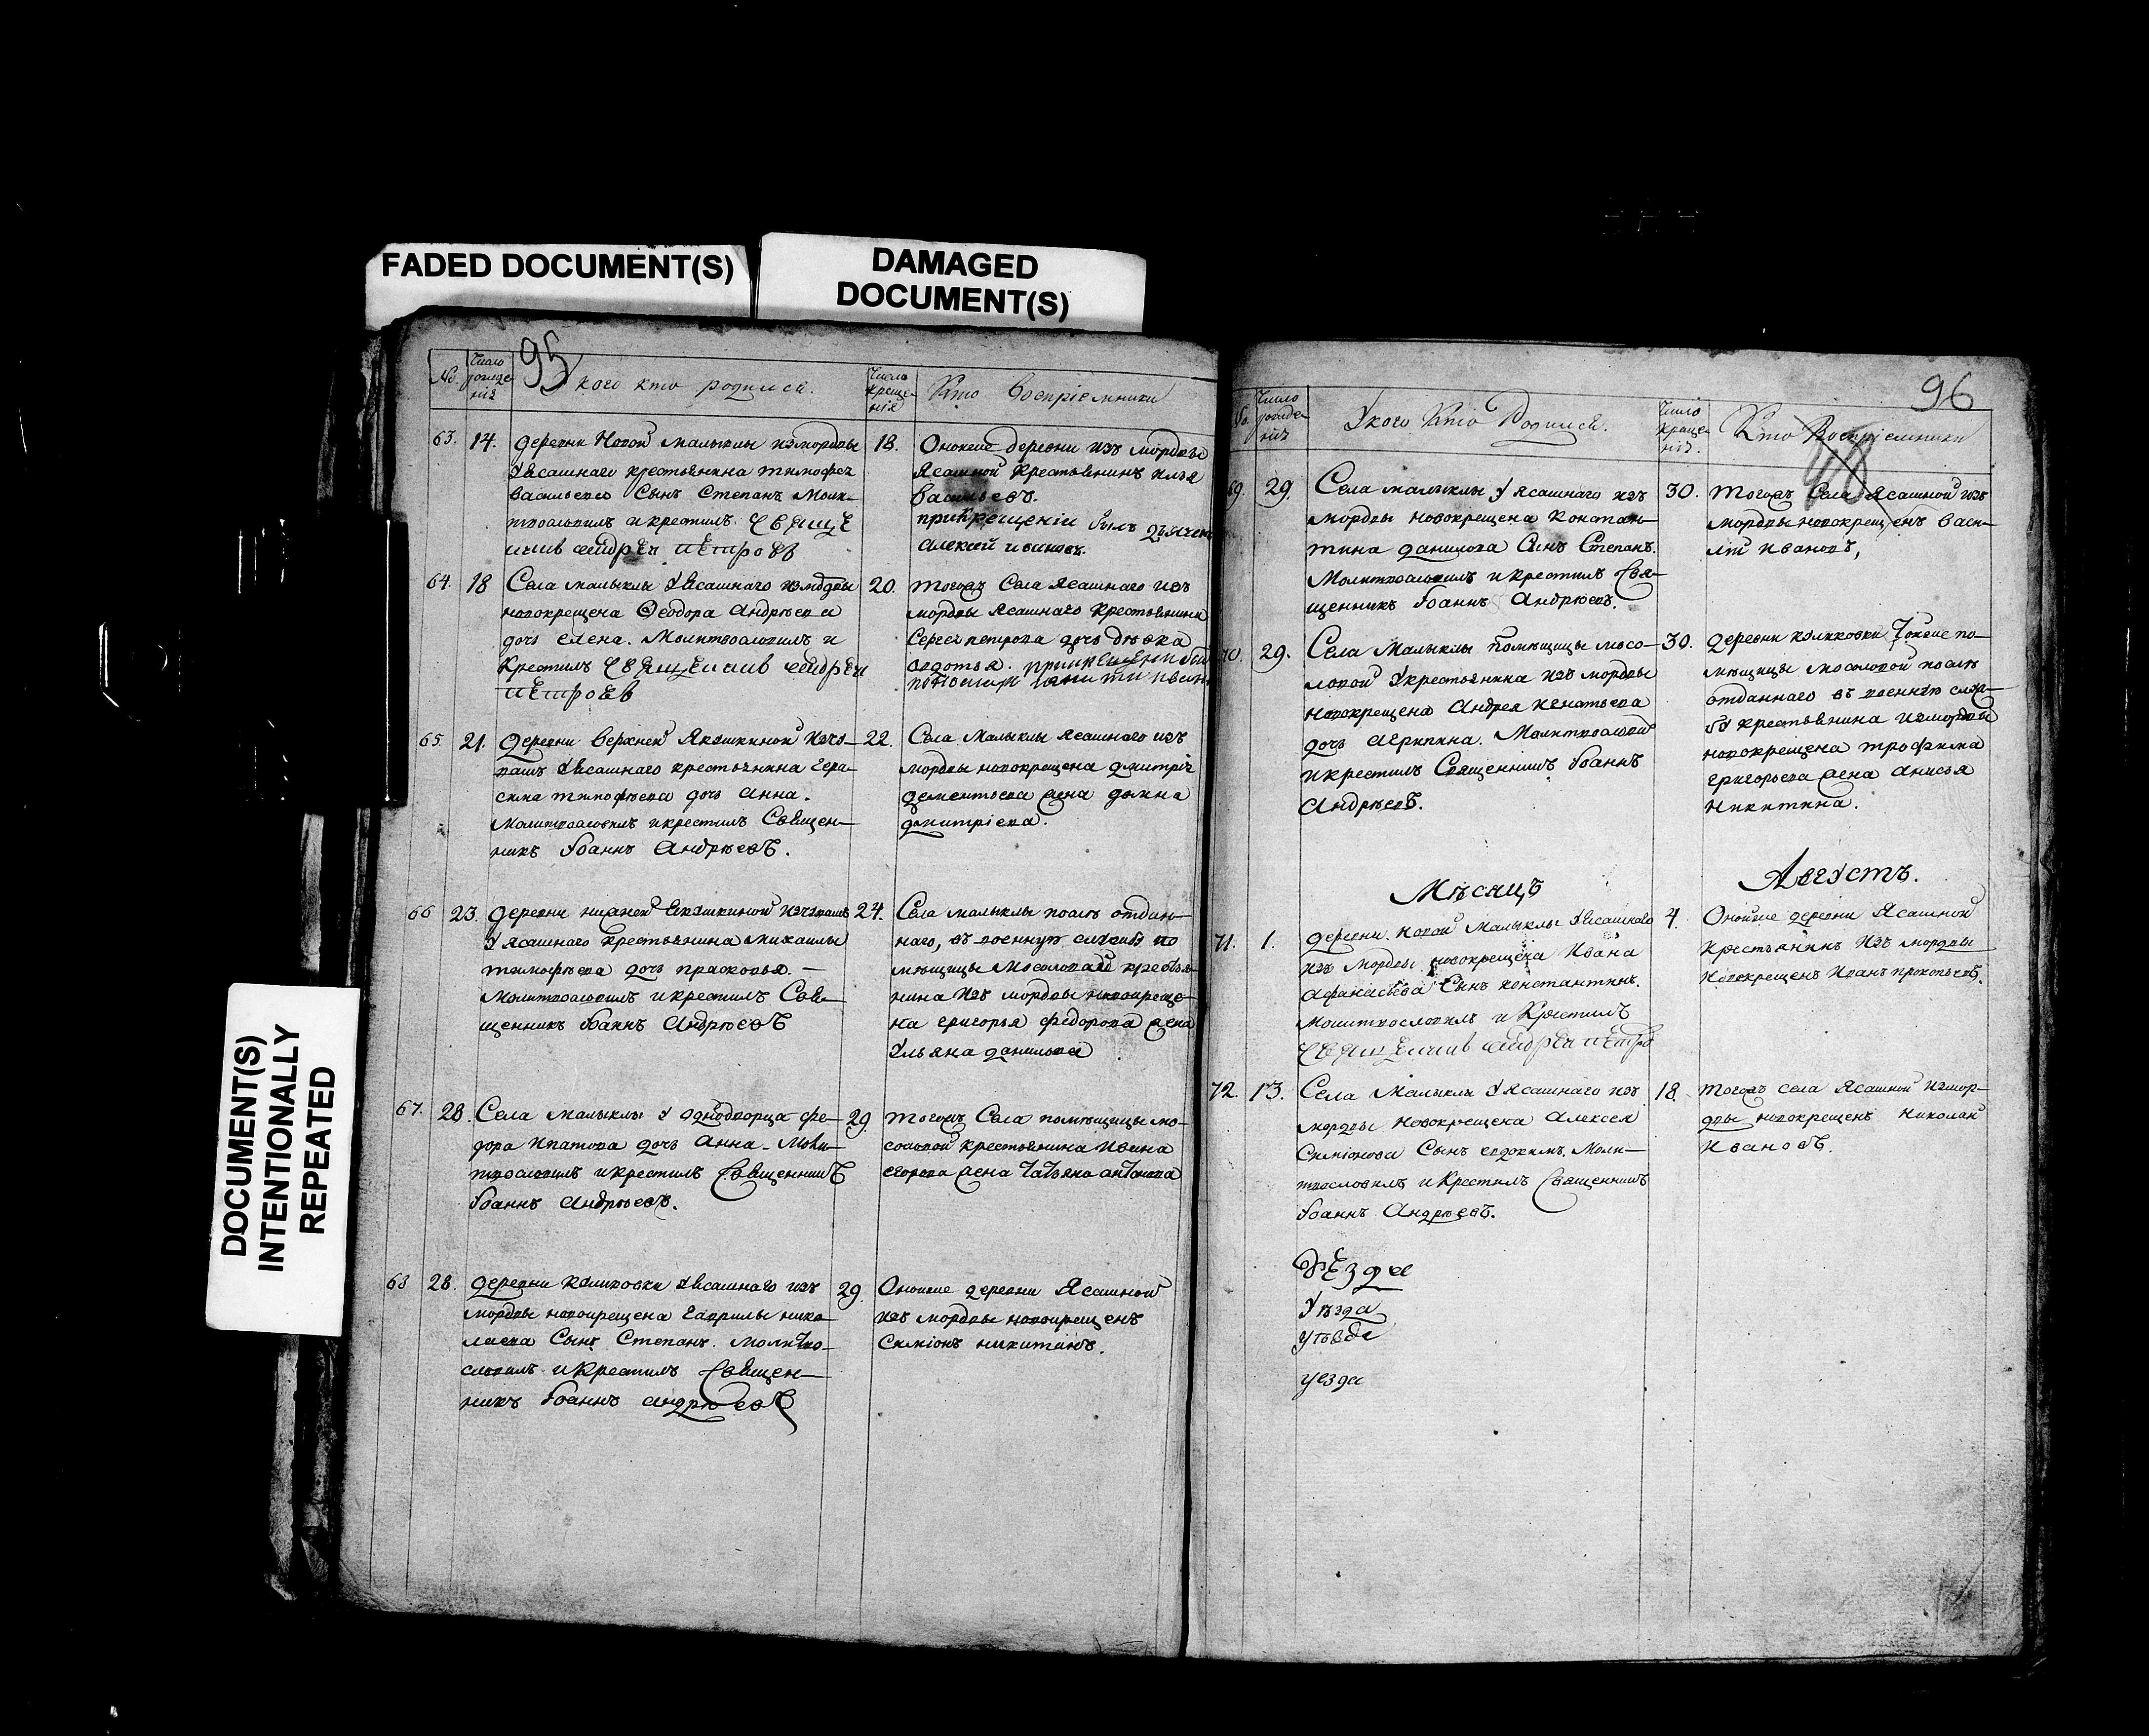 FADED DOCUMENT(S)
DAMAGED
DOCUMENT(S)
DOCUMENT(S)
INTENTIONALLY
REPEATED
95
№.
Число рожде-нія
У кого кто родился.
Число креще-нія
Кто воспріемники
63. 14.
деревни Новой малыклы измордвы
Уясашнаго крестьянина тимофея
васильева Сынъ Степанъ Моли-
твословилъ икрестилъ свяще
никъ андреи петровъ
18.
Оноже деревни изъ мордвы
Ясашной Крестьянинъ илья
васильевъ.
прикрещеніи былъ дьячек
алексей ивановъ.
64. 18
Села малыклы Уясашнаго измодвы
новокрещена Ѳеодора Андрѣева
дочь елена. Молитвословилъ и
крестилъ священникъ андреи
петровъ
20.
тогожъ Села Ясашнаго изъ
мордвы Ясашнаго крестьянина
Сергея петрова дочь дѣвка
авдотья.
65. 21.
деревни верхней Якушкиной изчу-
вашъ Уясашнаго крестьянина гера-
сима тимофѣева дочь анна.
Молитвословилъ икрестилъ Священ-
никъ Іоаннъ Андрѣевъ.
22.
Села Малыклы Ясашнаго изъ
мордвы новокрещена дмитрія
дементьева жена домна
дмитріева.
66 23.
деревни нижней Екушкиной изчувашъ
У ясашнаго крестьянина михаилы
тимофѣева дочь прасковья. —
Молитвословилъ икрестилъ Свя-
щенникъ Іоаннъ Андрѣевъ
24.
Села малыклы послѣ отдан-
наго, въ военную службу по
мѣщицы Мосоловой крестья-
нина изъ мордвы новокреще-
на григорья федорова жена
Ульяна данилова
67. 28.
Села малыклы У однодворца фе-
дора Ипатова дочь Анна. Моли-
твословилъ икрестилъ Священникъ
Іоаннъ Андрѣевъ.
29
тогожъ Села помѣщицы мо-
соловой крестьянина Ивана
егорова жена татьяна антонова
68 28.
деревни Куликовки Уясашнаго изъ
мордвы новокрещена Гаврилы нико
лаева Сынъ Степанъ. Молитво-
словилъ икрестилъ Священ-
никъ Іоаннъ андрѣевъ
29.
Оноже деревни Ясашной
изъ мордвы новокрещенъ
Симіонъ никитинъ.
96
№.
Число рожде-нія
У кого Кто Родился.
Число креще-нія.
Кто Воспріемники
69. 29.
Села малыклы У ясашнаго изъ
мордвы новокрещена Констан-
тина данилова Сынъ Степанъ.
Молитвословилъ икрестилъ Свя-
щенникъ Іоаннъ Андрѣевъ.
30.
тогожъ Села Ясашной изъ
мордвы новокрещенъ васи-
лій ивановъ,
70. 29.
Села Малыклы помѣщицы мосо-
ловой Укрестьянина изъ мордвы
новокрещена Андрея игнатьева
дочь агрипина. Молитвословил
икрестилъ Священникъ Іоаннъ
Андрѣевъ.
30.
деревни куликовки тояже по-
мѣщицы мосоловой послѣ
отданнаго въ военную служ-
бу крестьянина измордвы
новокрещена трофима
григорьева жена анисья
Никитина.
Мѣсяцъ
Августъ.
71. 1.
деревни. Новой Малыклы Уясашнаго
изъ Мордвы новокрещена Ивана
афанасьева Сынъ константинъ.
Молитвословилъ и Крестилъ
священникъ андреи петро
4.
Оноже деревни Ясашной
крестьянинъ изъ мордвы
Новокрещенъ Иванъ прокопьевъ.
72. 13.
Села Малыклы Уясашнаго изъ
мордвы новокрещена Алексея
Симіонова Сынъ евдокимъ. Моли-
твословилъ и Крестилъ Священникъ
Іоаннъ Андрѣевъ.
18.
тогожъ села Ясашной измор-
двы новокрещенъ николай
Ивановъ.
Уѣзда
уѣзда
уезда